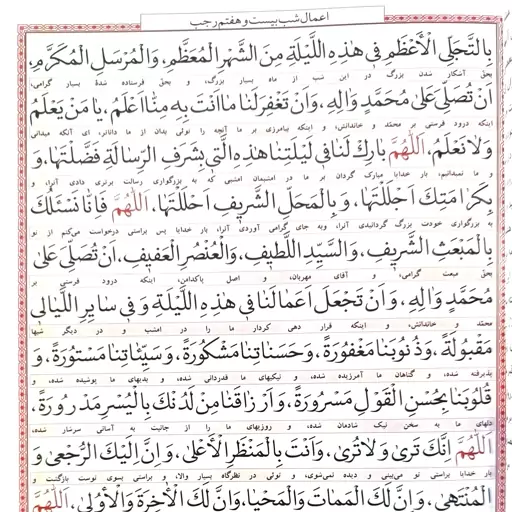 اعمال شب بیست و هفتم رجب
بِالتَّجَلِّى الْاَعْظَمِ فى هٰذِهِ اللَّيْلَةِ مِنَ الشَّهْرِ الْمُعَظَّمِ، وَالْمُرْسَلِ الْمُكَرَّمِ،
بحق آشکار شدن بزرگ در این شب از ماه بسیار بزرگ، و بحق فرستاده شدۀ بسیار گرامی،
اَنْ تُصَلِّىَ عَلىٰ مُحَمَّدٍ وَالِهِ، وَاَنْ تَغْفِرَلَنا مااَنْتَ بِهِ مِنّااَعْلَمُ، يامَنْ يَعْلَمُ
اینکه درود فرستی بر محمّد و خاندانش، و اینکه بیامرزی بر ما آنچه را توئی بدان از ما داناتر، ای آنکه میدانی
وَلانَعْلَمُ، اَللّٰهُمَّ بارِكْ لَنافى لَيْلَتِناهٰذِهِ الَّتى بِشَرَفِ الرِّسالَةِ فَضَّلْتَها، وَ
و ما نمیدانیم، بار خدایا مبارک گردان بر ما در امشبمان امشبی که به بزرگواری رسالت برتری دادی آنرا، و
بِكَرامَتِكَ اَجْلَلْتَها، وَبِالْمَحَلِّ الشَّريفِ اَحْلَلْتَها، اَللّٰهُمَّ فَاِنّانَسْئَلُكَ
به بزرگواری خودت بزرگ گردانیدی آنرا، وبه جای گرامی آوردی آنرا، بار خدایا پس براستی درخواست می‌کنم از تو
بِالْمَبْعَثِ الشَّريفِ، وَالسَّيِّدِ اللَّطيفِ، وَالْعُنْصُرِ الْعَفيفِ، اَنْ تُصَلِّىَ عَلىٰ
بحق مبعث گرامی، و آقای مهربان، و اصل پاکدامن، اینکه درود فرستی بر
مُحَمَّدٍ وَالِهِ، وَاَنْ تَجْعَلَ اَعْمالَنافى هٰذِهِ اللَّيْلَةِ وَفى سايِرِ اللَّيالى
محمّد و خاندانش، و اینکه قرار دهی کردار ما را در امشب و در دیگر شبها
مَقْبُولَةً، وَذُنُوبَنا مَغْفُورَةً، وَحَسَناتِنا مَشْكُورَةً، وَسَيِّئاتِنا مَسْتُورَةً، وَ
پذیرفته شده، و گناهان ما آمرزیده شده، و نیکیهای ما قدردانی شده، و بدیهای ما پوشیده شده، و
قُلُوبَنا بِحُسْنِ الْقَوْلِ مَسْرُورَةً، وَاَرْزاقَنا مِنْ لَدُنْكَ بِالْيُسْرِ مَدْرُورَةً،
دلهای ما به سخن نیک شادمان شده، و روزیهای ما را از جانبت به آسانی سرشار شده،
اَللّٰهُمَّ اِنَّكَ تَرىٰ وَلاتُرىٰ، وَاَنْتَ بِالْمَنْظَرِ الْاَعْلىٰ، وَاِنَّ اِلَيْكَ الرُّجْعىٰ وَ
بار خدایا براستی تو می‌بینی و دیده نمی‌شوی، و توئی در نظرگاه بسیار والا، و براستی بسوی توست بازگشت و
الْمُنْتَهىٰ، وَاِنَّ لَكَ الْمَماتَ وَالْمَحْيا، وَاِنَّ لَكَ الْاٰخِرَةَ وَالْاُولىٰ، اَللّٰهُمَّ